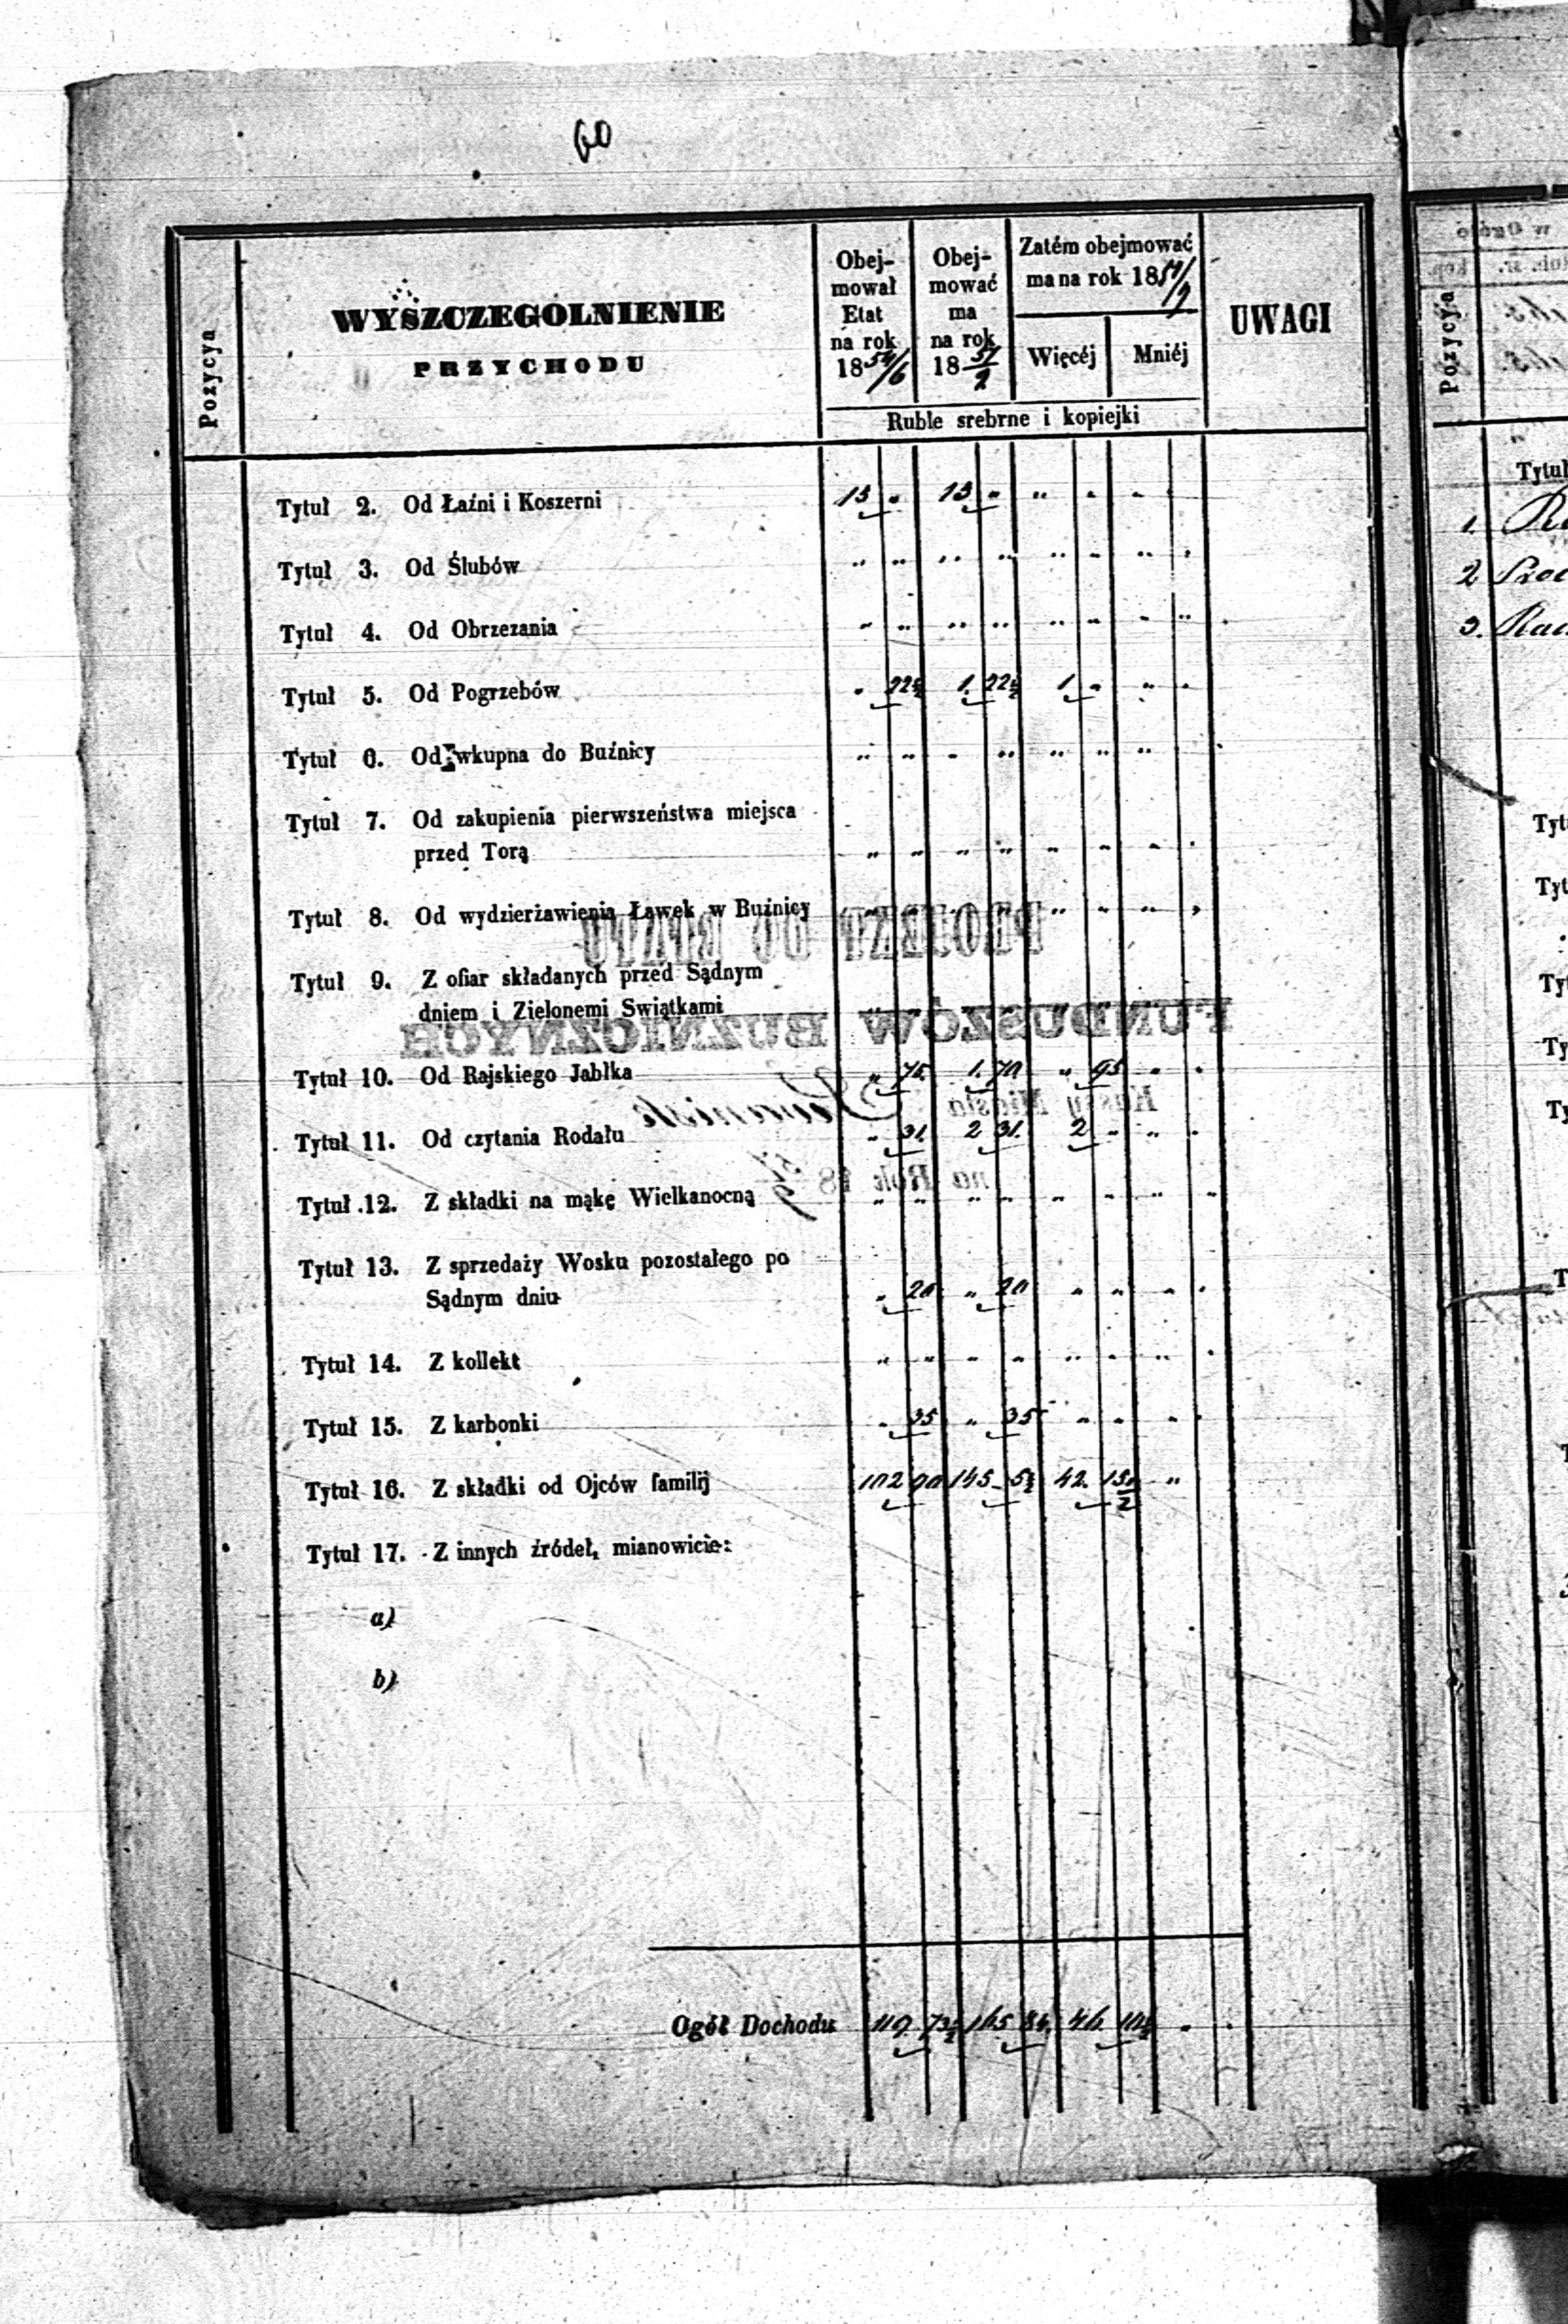 60
Pozycya
WYSZCZEGÓLNIENIE
PRZYCHODU
Obej-
mował
Etat
na rok
18 54/6
Obej-
mować
ma
na rok
18 57/9
Zatém obejmować
ma na rok 18 57/9
Więcéj Mniéj
UWAGI
Ruble srebrne i kopiejki
Tytuł 2. Od Łaźni i Koszerni 13 „ 13 „ „ „ „ „
Tytuł 3. Od Ślubów „ „ „ „ „ „ „ „
Tytuł 4. Od Obrzezania „ „ „ „ „ „ „ „
Tytuł 5. Od Pogrzebów „ 22½ 1. 22½ 1. „ „ „
Tytuł 6. Od wkupna do Buźnicy „ „ „ „ „ „ „
Tytuł 7. Od zakupienia pierwszeństwa miejsca
przed Torą „ „ „ „ „ „ „ „
Tytuł 8. Od wydzierżawienia Ławek w Buźnicy „ „ „ „
Tytuł 9. Z ofiar składanych przed Sądnym
dniem i Zielonemi Swiątkami
Tytuł 10. Od Rajskiego Jabłka „ 75 1. 70 „ 95 „ „
Tytuł 11. Od czytania Rodału „ 31. 2 31. 2 „ „ „
Tytuł 12. Z składki na mąkę Wielkanocną „ „ „ „ „ „ „ „
Tytuł 13. Z sprzedaży Wosku pozostałego po
Sądnym dniu „ 20 „ 20 „ „ „ „
Tytuł 14. Z kollekt „ „ „ „ „ „ „ „
Tytuł 15. Z karbonki „ 35 „ 35 „ „ „ „
Tytuł 16. Z składki od Ojców familij 102 90 145 5½ 42. 15½ „
Tytuł 17. Z innych źródeł, mianowicie:
a)
b)
Ogół Dochodu 119. 73½ 165 84 46. 10½ „ „
PROJEKT DO ETATU
FUNDUSZÓW BUZNICZNYCH
Kassy Miasta
na Rok 18 57/9
w Ogóle
kop.
Pozycya
Tytuł
1.
2
3.